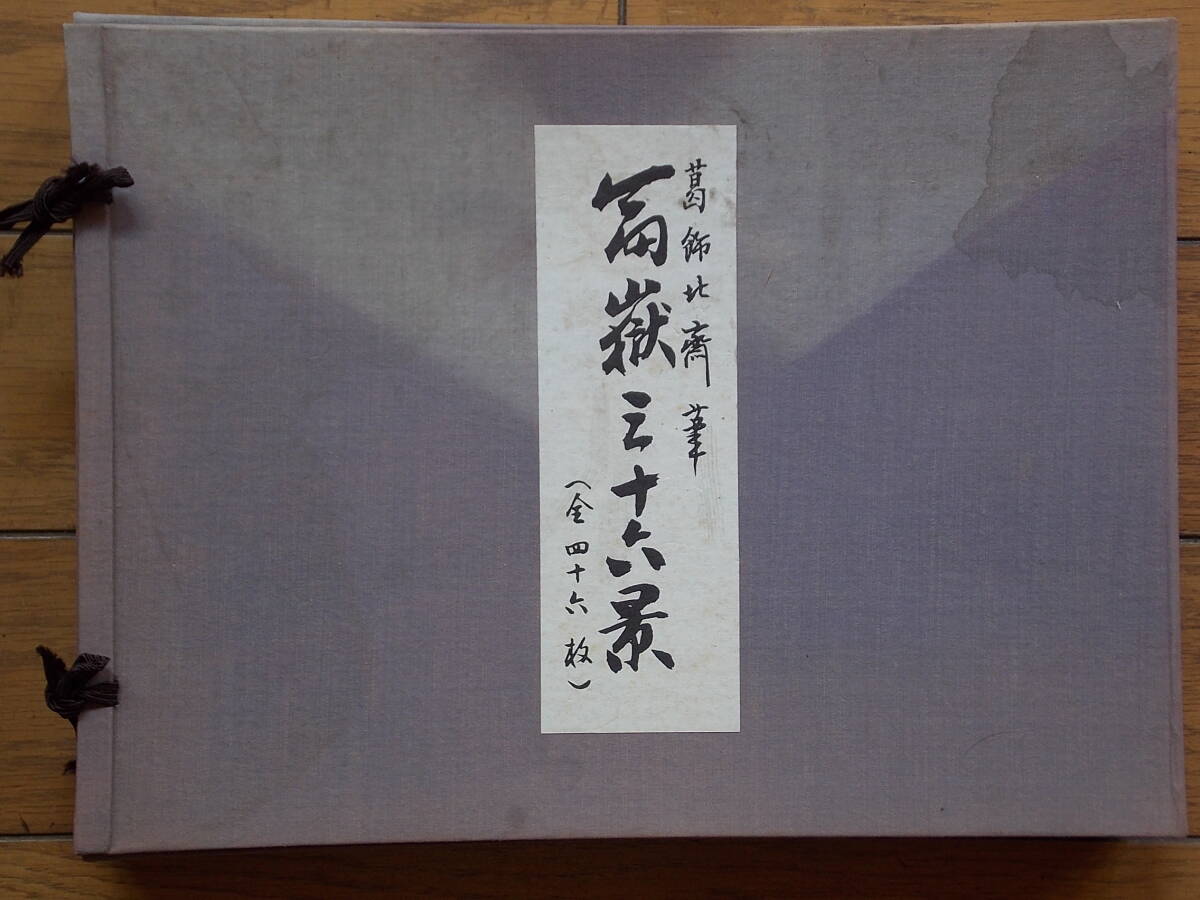 葛飾北齋筆
冨嶽三十六景
（全四十六枚）